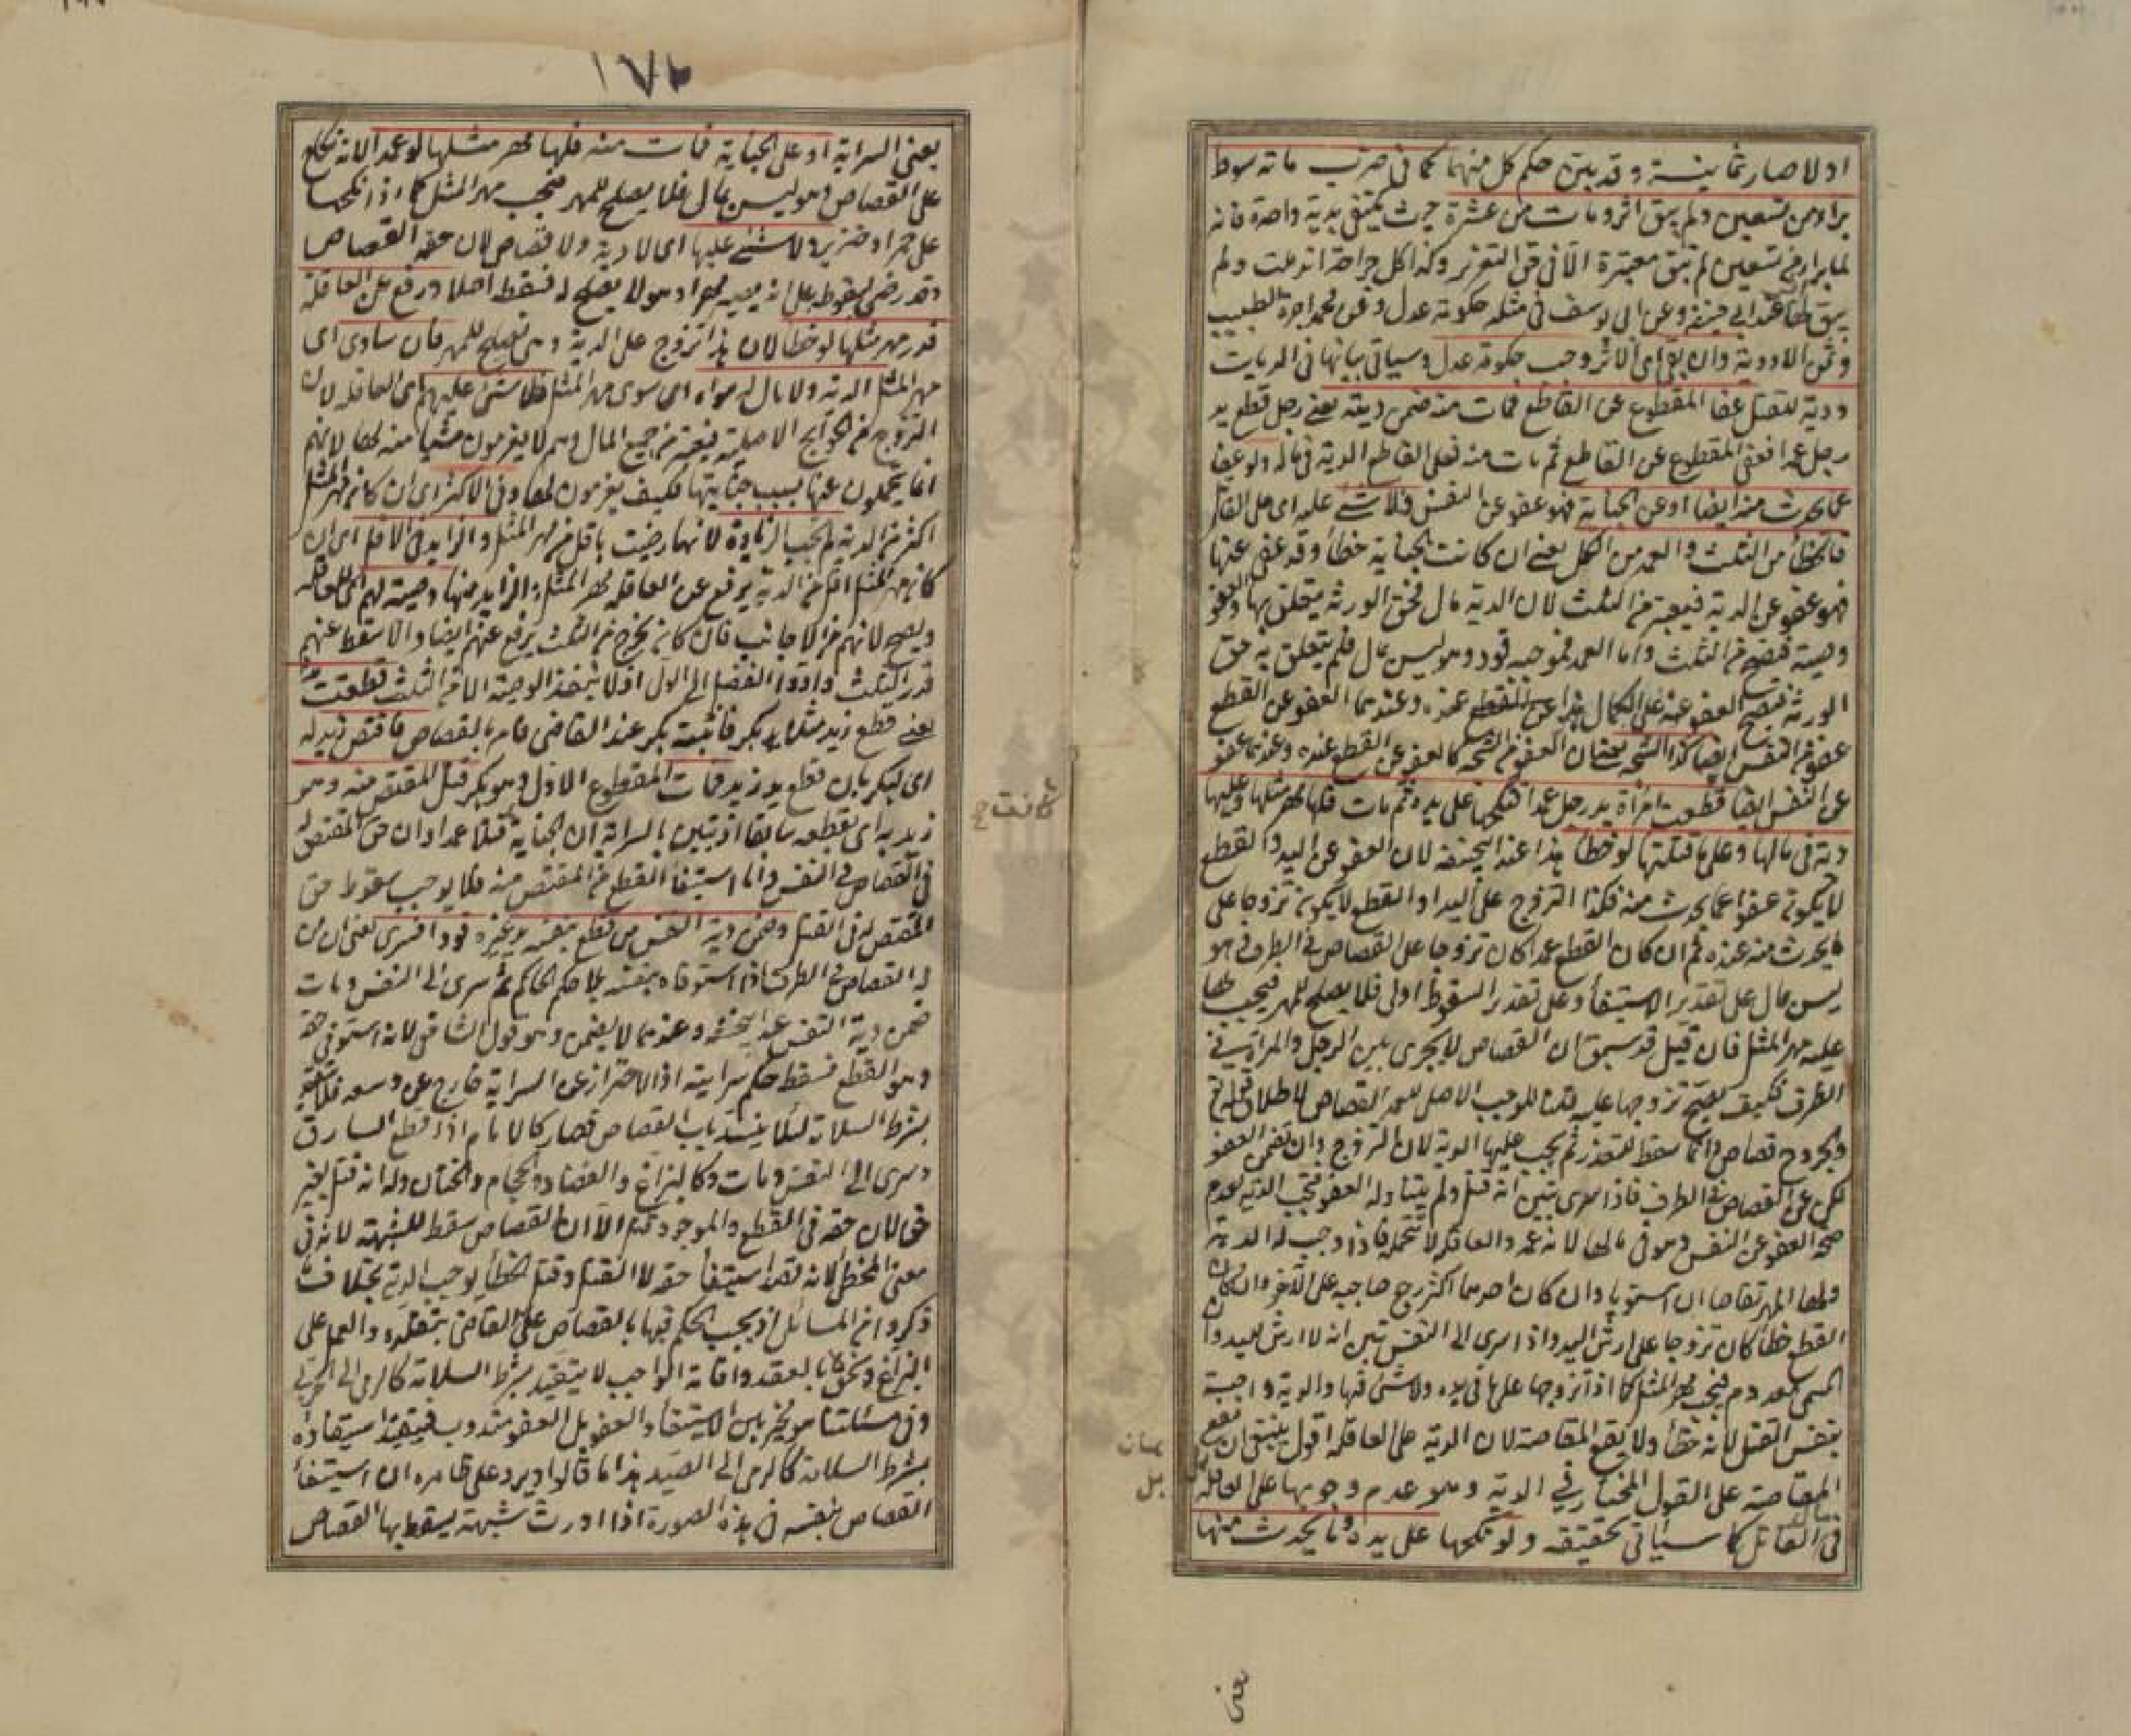 اولا صار ثمانية وقد بين حكم كل منهما كما في ضرب مائة سوط
براء من تسعين ولم يبق اثر ومات من عشرة حيث يكتفى بدية واحدة فانه
لما برأ من تسعين لم تبق معتبرة الا في حق التعزير وكذا كل جراحة اندملت ولم
يبق لها اثر عند ابي حنيفة وعن ابي يوسف في مثله حكومة عدل وعن محمد اجرة الطبيب
وثمن الادوية وان بقي اي الاثر وجب حكومة عدل وسيأتي بيانها في الديات
ودية للقتل عفا المقطوع عن القاطع فمات منه ضمن ديته يعني رجل قطع يد
رجل عمدا فعفى المقطوع عن القاطع ثم مات منه فعلى القاطع الدية في ماله ولو عفا
عما يحدث منه ايضا او عن الجناية فهو عفو عن النفس فلا شئ عليه اى على القاطع
فالخطأ من الثلث والعمد من الكل يعني ان كانت الجناية خطأ وقد عفى عنها
فهو عفو عن الدية فيعتبر من الثلث لان الدية مال فحق الورثة يتعلق بها والعفو
وصية فيصح من الثلث واما العمد فموجبه قود وهو ليس بمال فلم يتعلق به حق
الورثة فيصح العفو عنه على الكمال عن القطع عنده وعندهما العفو عن القطع
عفو عن النفس ايضا كذا الشجة يعني ان العفو عن الشجة كالعفو عن القطع عنده وعندهما عفو
عن النفس ايضا قطعت امرأة يد رجل عمدا فنكحها على يده ثم مات فلها مهر مثلها وعليها
دية في مالها وعلى عاقلتها لو خطأ هذا عند ابي حنيفة لان العفو عن اليد او القطع
لا يكون عفوا عما يحدث منه فكذا التزوج على اليد او القطع لا يكون تزوجا على
ما يحدث منه عنده ثم ان كان القطع عمدا كان تزوجا على القصاص في الطرف وهو
ليس بمال على تقدير الاستيفاء وعلى تقدير السقوط اولى فلا يصلح للمهر فيجب لها
عليه مهر المثل فان قيل قد سبق ان القصاص لا يجرى بين الرجل والمرأة في
الطرف فكيف يصح تزوجها عليه قلنا الموجب الاصلي للعمد القصاص لاطلاق قوله تع
والجروح قصاص وانما سقط للتعذر ثم يجب عليها الدية لان التزوج وان تضمن العفو
لكن عن القصاص في الطرف فاذا سرى تبين انه قتل ولم يتناوله العفو فتجب الدية لعدم
صحة العفو عن النفس وهو في مالها لانه عمد والعاقلة لا تتحمله فاذا وجب له الدية
ولها المهر تقاصا ان استويا وان كان احدهما اكثر رجع صاحبه على الآخر وان كان
القطع خطأ كان تزوجا على ارش اليد واذا سرى الى النفس تبين انه لا ارش لليد وان
المسمى معدوم فيجب مهر المثل كما اذا تزوجها على ما في يده ولا شئ فيها والدية واجبة
بنفس القتل لانه خطأ ولا يقع المقاصة لان الدية على العاقلة اقول ينبغي ان يقع
المقاصة على القول المختار في الدية وهو عدم وجوبها على العاقلة
في القاتل كما سيأتي تحقيقه ولو نكحها على يده وما يحدث منها
يعنى
١٧٢
يعنى السراية او على الجناية فمات منه فلها مهر مثلها لو عمدا لانه نكاح
على القصاص وهو ليس بمال فلا يصلح للمهر فيجب مهر المثل كما اذا نكحها
على خمر او خنزير ولا شئ عليها اى لا دية ولا قصاص لان حقه القصاص
وقد رضى بسقوطه على انه يصير مهرا وهو لا يصلح له فسقط اصلا ورفع عن العاقلة
قدر مهر مثلها لو خطأ لان هذا تزوج على الدية وهى تصلح للمهر فان ساوى اى
مهر المثل الدية ولا مال له سواه اى سوى مهر المثل فلا شئ عليهم اى العاقلة لان
التزوج من الحوايج الاصلية فيعتبر من جميع المال وهم لا يغرمون شيئا منه لها لانهم
انما يتحملون عنها بسبب جنايتها فكيف يغرمون لها وفي الاكثر اى ان كان مهر المثل
اكثر من الدية لم تجب الزيادة لانها رضيت باقل من مهر المثل والزايد في الاقل اى ان
كان مهر المثل اقل من الدية يرفع عن العاقلة مهر المثل والزايد منها وصية لهم اى للعاقلة
ويصح لانهم من الاجانب فان كان يخرج من الثلث يرفع عنهم ايضا والا سقط عنهم
قدر الثلث وادوا الفضل الى الولي اذ لا تنفذ الوصية الا من الثلث قطعت يد
يعنى قطع زيد مثلا يد بكر فاثبته بكر عند القاضى فامر بالقصاص فاقتص زيد له
اى لبكر بان قطع يد زيد فمات المقطوع الاول وهو بكر قتل المقتص منه وهو
زيد به اى بقطعه سابقا اذ تبين بالسراية ان الجناية قتل عمدا وان حق المقتص له
في القصاص في النفس وانما استيفاء القطع من المقتص منه فلا يوجب سقوط حق
المقتص له في القتل وضمن دية النفس من قطع بنفسه يد غيره قودا فسرى يعنى ان من
له القصاص في الطرف اذا استوفاه بنفسه بلا حكم الحاكم ثم سرى الى النفس ومات
ضمن دية النفس عند ابي حنيفة وعندهما لا يضمن وهو قول الشافعى لانه استوفى حقه
وهو القطع فسقط حكم سرايته اذ الاحتراز عن السراية خارج عن وسعه فلا يتقيد
بشرط السلامة لئلا ينسد باب القصاص فصار كالامام اذا قطع السارق
وسرى الى النفس ومات وكالبزاغ والفصاد والحجام والختان وله انه قتل بغير
حق لان حقه في القطع والموجود قتل الا ان القصاص سقط للشبهة لانه في
معنى المخطئ لانه قصد استيفاء حقه لا القتل وقتل الخطأ يوجب الدية بخلاف ما
ذكروا من المسائل اذ يجب الحكم فيها بالقصاص على القاضى بتقلده والعمل على
البزاغ ونحوه بالعقد واقامة الواجب لا يتقيد بشرط السلامة كالرمى الى الحربى
وفي مسئلتنا هو مخير بين الاستيفاء والعفو بل العفو مندوب فيتقيد استيفاؤه
بشرط السلامة كالرمى الى الصيد هذا ما قالوا ويرد على ظاهره ان استيفاء
القصاص بنفسه في هذه الصورة اذا اورث شبهة يسقط بها القصاص